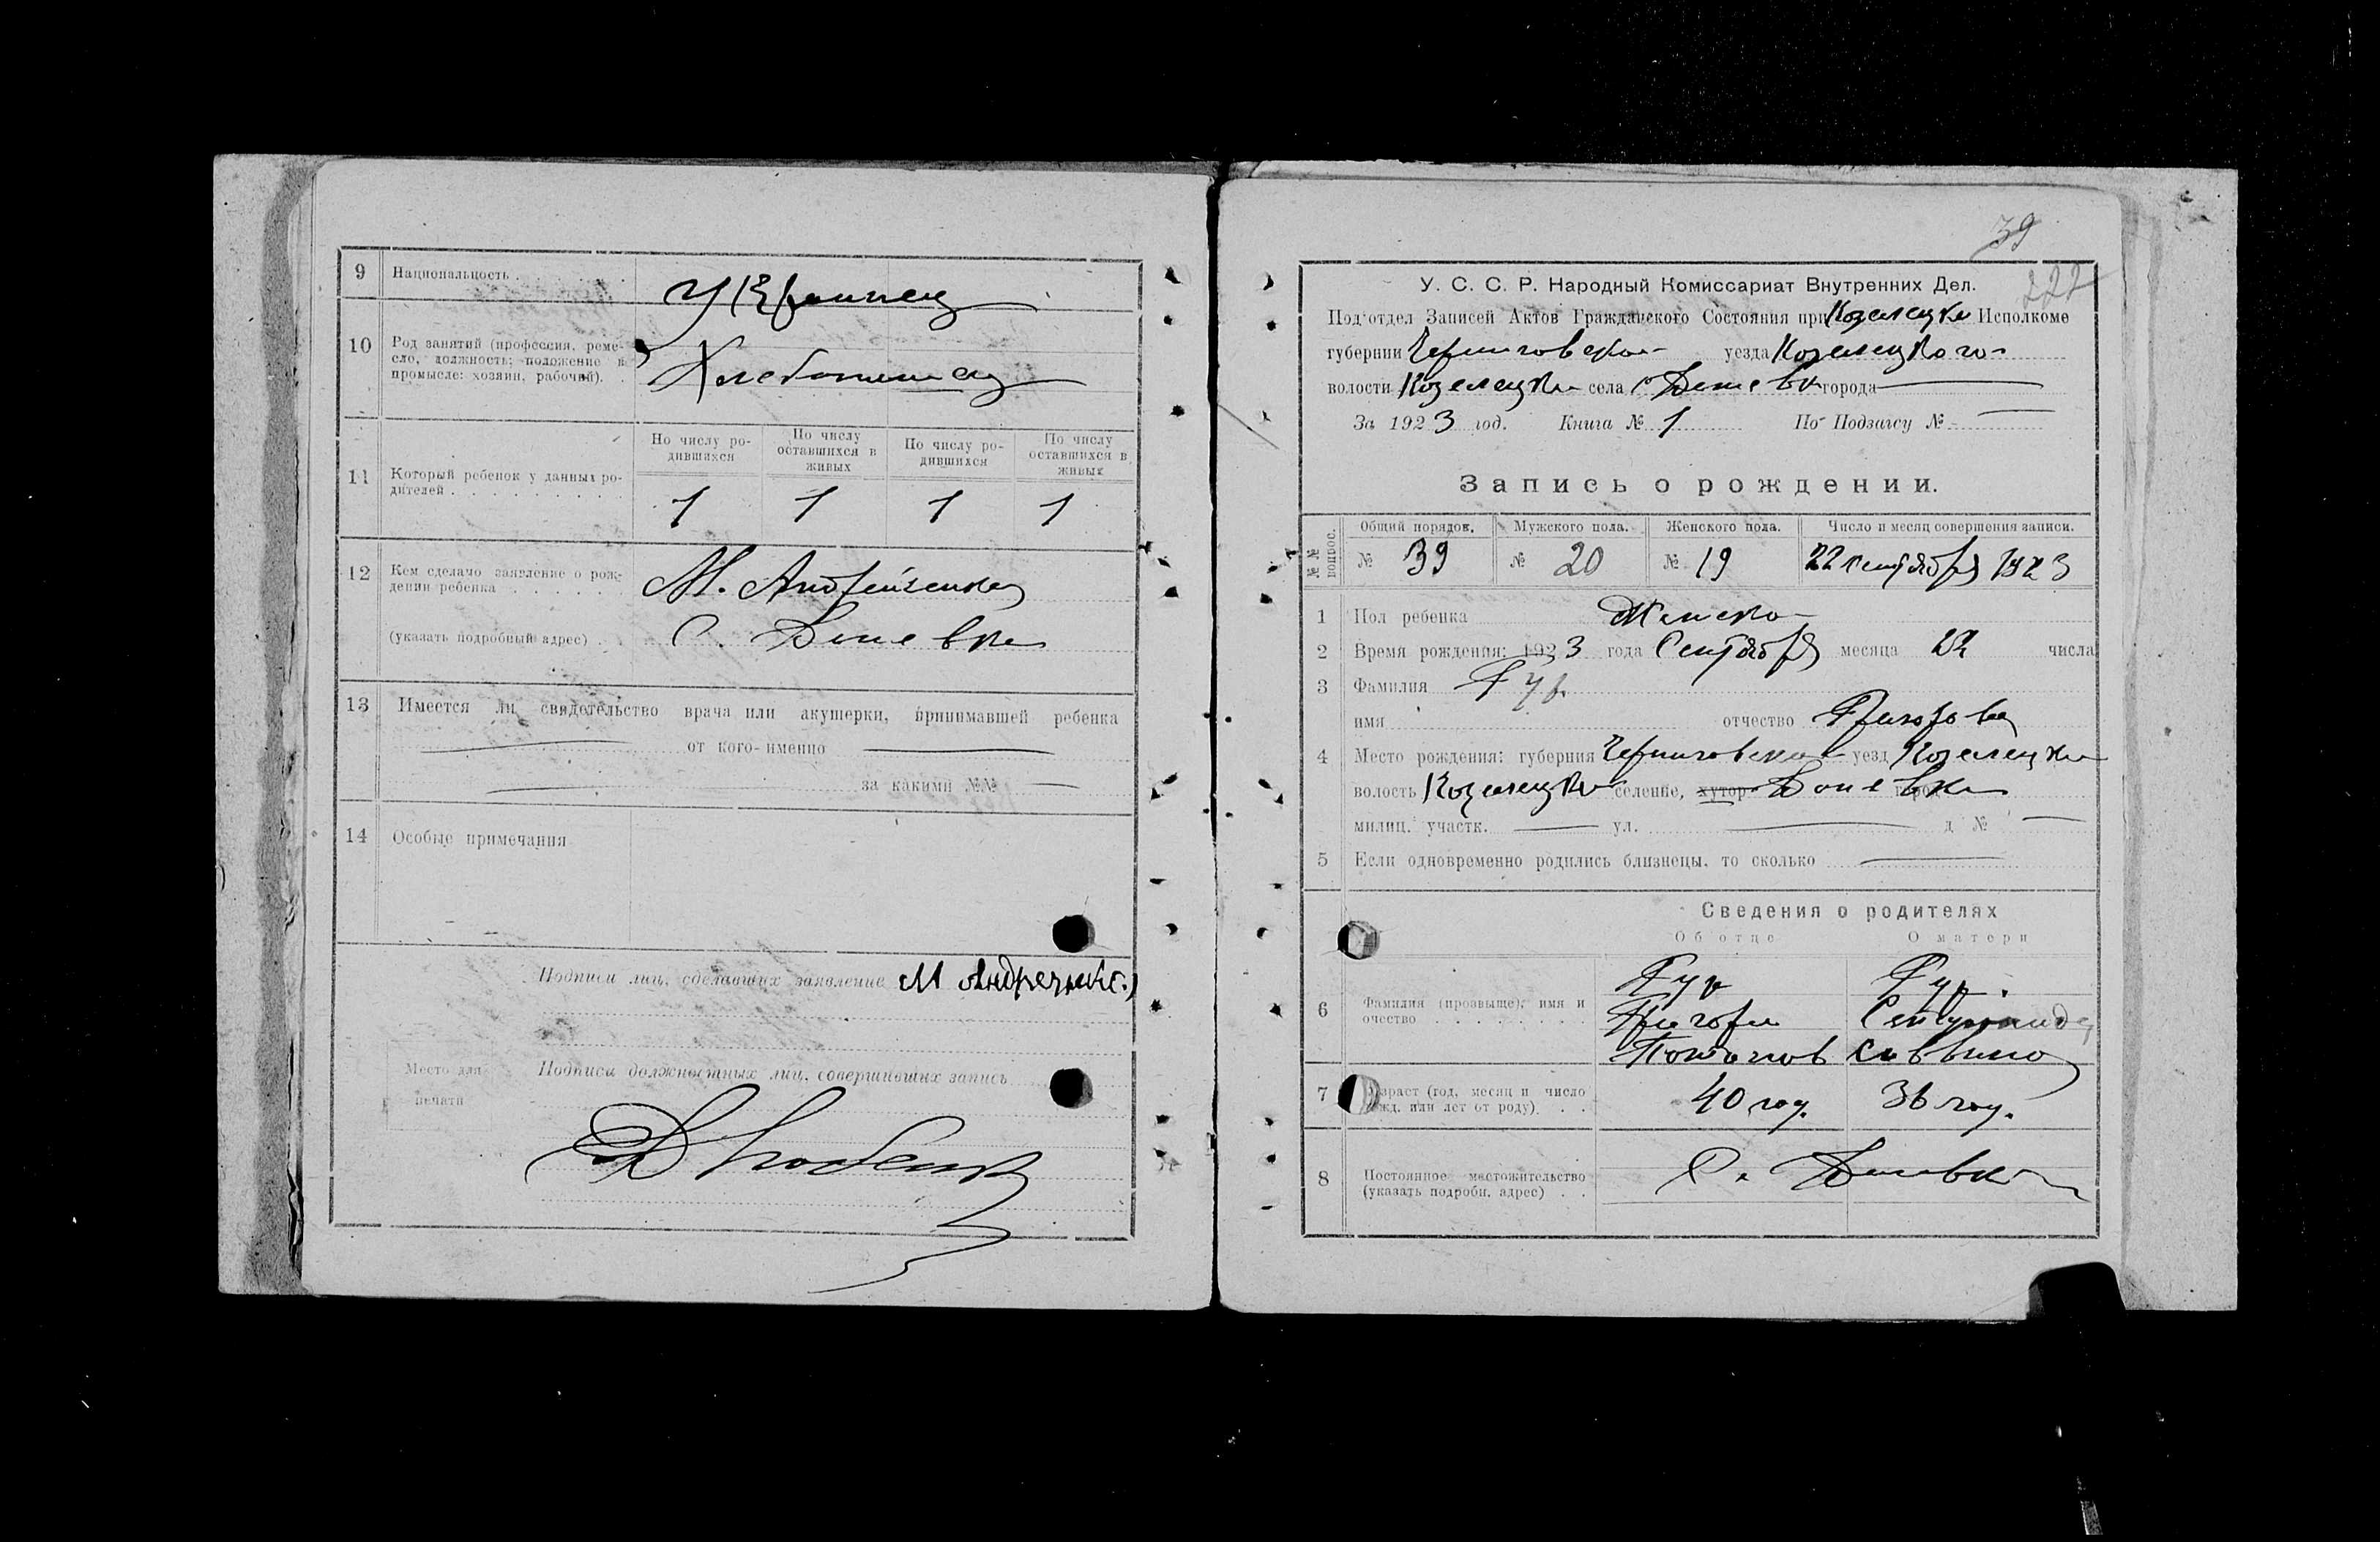 9 Национальность . . . . .
Украинец
10 Род занятий (профессия, реме-
сло, должность; положение в
промысле: хозяин, рабочий). .
Хлебопашец
11 Который ребенок у данных ро-
дителей . . . . . . . . .
По числу ро-
дившихся
По числу
оставшихся в
живых
По числу ро-
дившихся
По числу
оставшихся в
живых
1 1 1 1
12 Кем сделано заявление о рож-
дении ребенка . . . . . .
М. Андрейченко
(указать подробный адрес) . .
С.
13 Имеется ли свидетельство врача или акушерки, принимавшей ребенка
от кого-именно
за какими №№
14 Особые примечания
Подписи лиц, сделавших заявление М
Место для
печати
Подписи должностных лиц, совершивших запись
39
222
У. С. С. Р. Народный Комиссариат Внутренних Дел.
Под'отдел Записей Актов Гражданского Состояния при Козелецком Исполкоме
губернии Черниговской уезда Козелецкого
волости Козелецкой села города
За 1923 год. Книга № 1 По Подзагсу №
Запись о рождении.
№№ вопрос.
Общий порядок. Мужского пола. Женского пола. Число и месяц совершения записи.
№ 39 № 20 № 19 22 сентября 1923
1 Пол ребенка Женско
2 Время рождения: 1923 года Сентября месяца числа
3 Фамилия Гур
имя отчество Григоров
4 Место рождения: губерния Черниговская уезд Козелецкий
волость Козелецкая селение, хутор город
милиц. участк. ул. д №
5 Если одновременно родились близнецы, то сколько
Сведения о родителях
Об отце О матери
6 Фамилия (прозвыще), имя и
очество . . . . . . . . .
Гур Гур.
Григори
Потапов Саввино
7 Возраст (год, месяц и число
рожд. или лет от роду) . .
40 год. 36 год.
8 Постоянное местожительство
(указать подробн. адрес) . .
С.